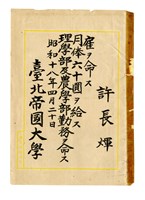 許長煇
雇ヲ命ス
月俸六十圓ヲ給ス
理學部及農學部勤務ヲ命ス
昭和十八年四月二十日
臺北帝國大學